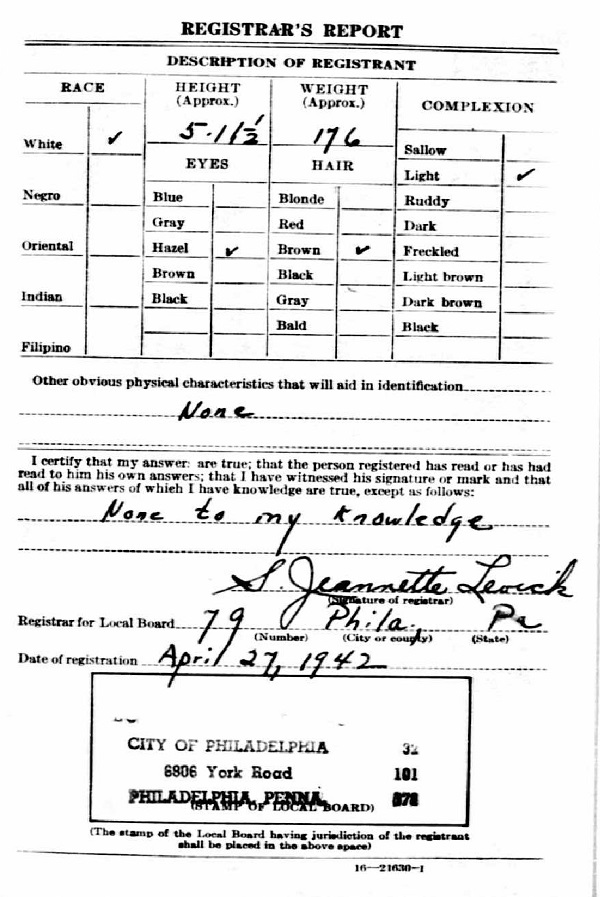 REGISTRAR'S REPORT
DESCRIPTION OF REGISTRANT
RACE
HEIGHT
(Approx.)
WEIGHT
(Approx.)
COMPLEXION
5-11½
176
White ✓
EYES
HAIR
Sallow
Light ✓
Negro
Blue
Blonde
Ruddy
Gray
Red
Dark
Oriental
Hazel ✓
Brown ✓
Freckled
Brown
Black
Light brown
Indian
Black
Gray
Dark brown
Bald
Black
Filipino
Other obvious physical characteristics that will aid in identification
None
I certify that my answers are true; that the person registered has read or has had
read to him his own answers; that I have witnessed his signature or mark and that
all of his answers of which I have knowledge are true, except as follows:
None to my knowledge
S. Jeannette Levick
(Signature of registrar)
Registrar for Local Board 79 Phila. Pa
(Number) (City or county) (State)
Date of registration April 27, 1942
CITY OF PHILADELPHIA 32
6806 York Road 101
PHILADELPHIA, PENNA.
(STAMP OF LOCAL BOARD)
(The stamp of the Local Board having jurisdiction of the registrant
shall be placed in the above space)
16—21630-1